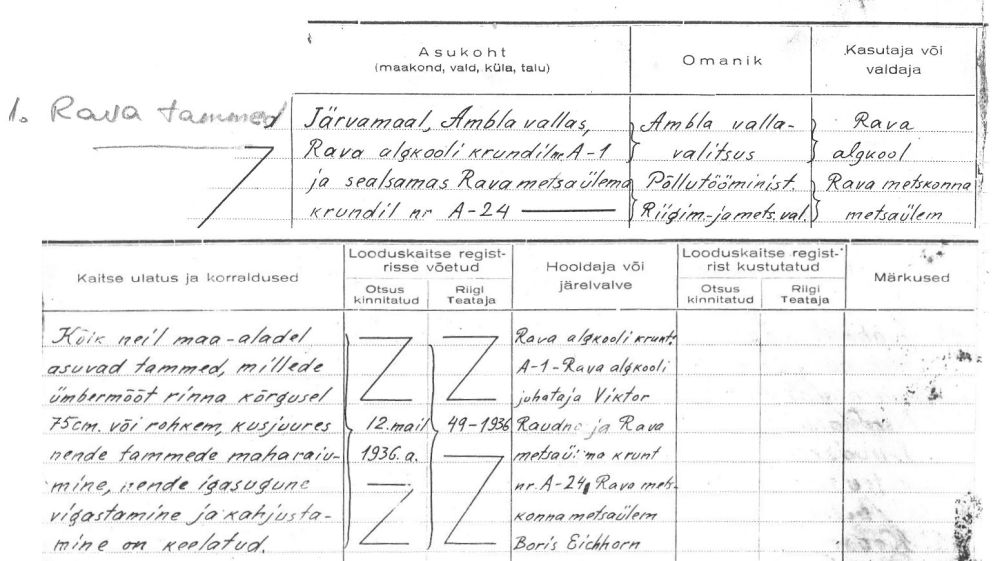 Asukoht
(maakond, vald, küla, talu)
Omanik
Kasutaja või
valdaja
1. Rava tammed
Järvamaal, Ambla vallas,
Rava algkooli krundil nr A-1
ja sealsamas Rava metsaülema
krundil nr A-24
Ambla valla-
valitsus
Põllutööminist.
Riigim.-ja mets. val.
Rava
algkool
Rava metskonna
metsaülem
Kaitse ulatus ja korraldused
Looduskaitse regist-
risse võetud
Otsus
kinnitatud
Riigi
Teataja
Hooldaja või
järelvalve
Looduskaitse regist-
rist kustutatud
Otsus
kinnitatud
Riigi
Teataja
Märkused
Kõik neil maa-aladel
asuvad tammed, millede
ümbermõõt rinna kõrgusel
75cm. või rohkem, kusjuures
nende tammede maharaiu-
mine, nende igasugune
vigastamine ja kahjusta-
mine on keelatud.
12. mail
1936. a.
49-1936
Rava algkooli krunt:
A-1-Rava algkooli
juhataja Viktor
Raudne ja Rava
metsaü ma krunt
nr. A-24, Rava mets-
konna metsaülem
Boris Eichhorn